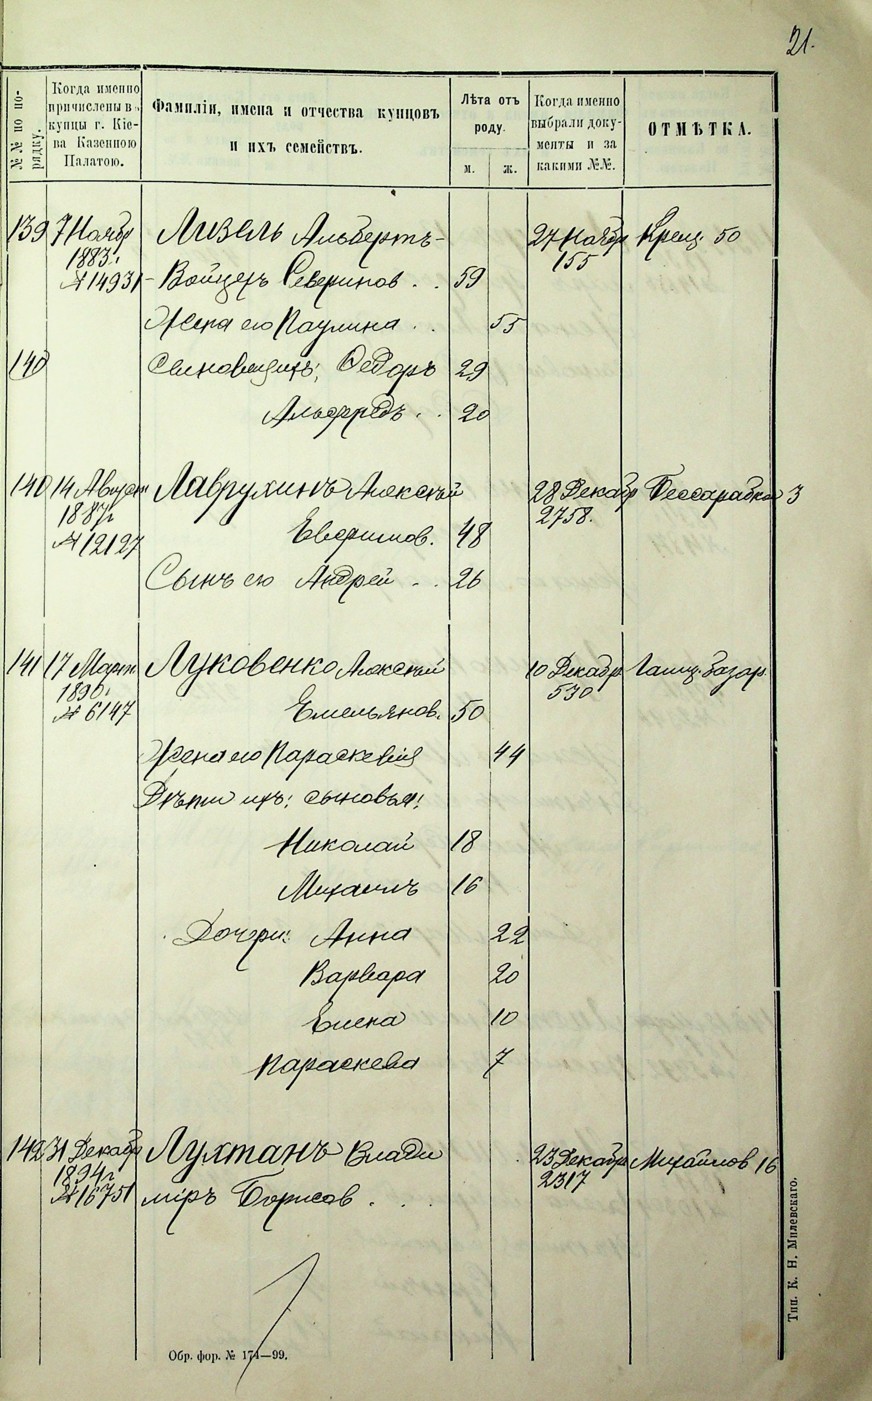 21.
№№ по по-
рядку.
Когда именно
причислены в
купцы г. Кіе-
ва Казенною
Палатою.
Фамиліи, имена и отчества купцовъ
и ихъ семействъ.
Лѣта отъ
роду.
м. ж.
Когда именно
выбрали доку-
менты и за
какими №№.
ОТМѢТКА.
139 7 Ноябр Лизель Альбертъ- 27 Ноябр Крещ. 50
1883г. 155
№ 14931 Войцехъ Северинов . . 59
Жена его Паулина . . 55
140 Сыновья ихъ: Федоръ 29
Альфредъ . . 20
140 14 Август Лаврухинъ Алексѣй 28 Декабр Бессарабка 3
1887г 2758.
№ 12127 Евфимов. 48
Сынъ его Андрей . . 26
141 17 Март Луковенко Алексѣй 10 Декабр Галиц. базар
1890г. 530
№ 6147 Емельянов. 50
Жена его Параскевія 44
Дѣти ихъ: сыновья:
Николай 18
Михаилъ 16
Дочери: Анна 22
Варвара 20
Елена 10
Параскева 7
142 31 Декабр Лухтанъ Влади 23 Декабр Михайлов 16
1894г 2317
№ 16751 міръ Борисов . . .
Обр. фор. № 174—99.
Тип. К. Н. Милевскаго.